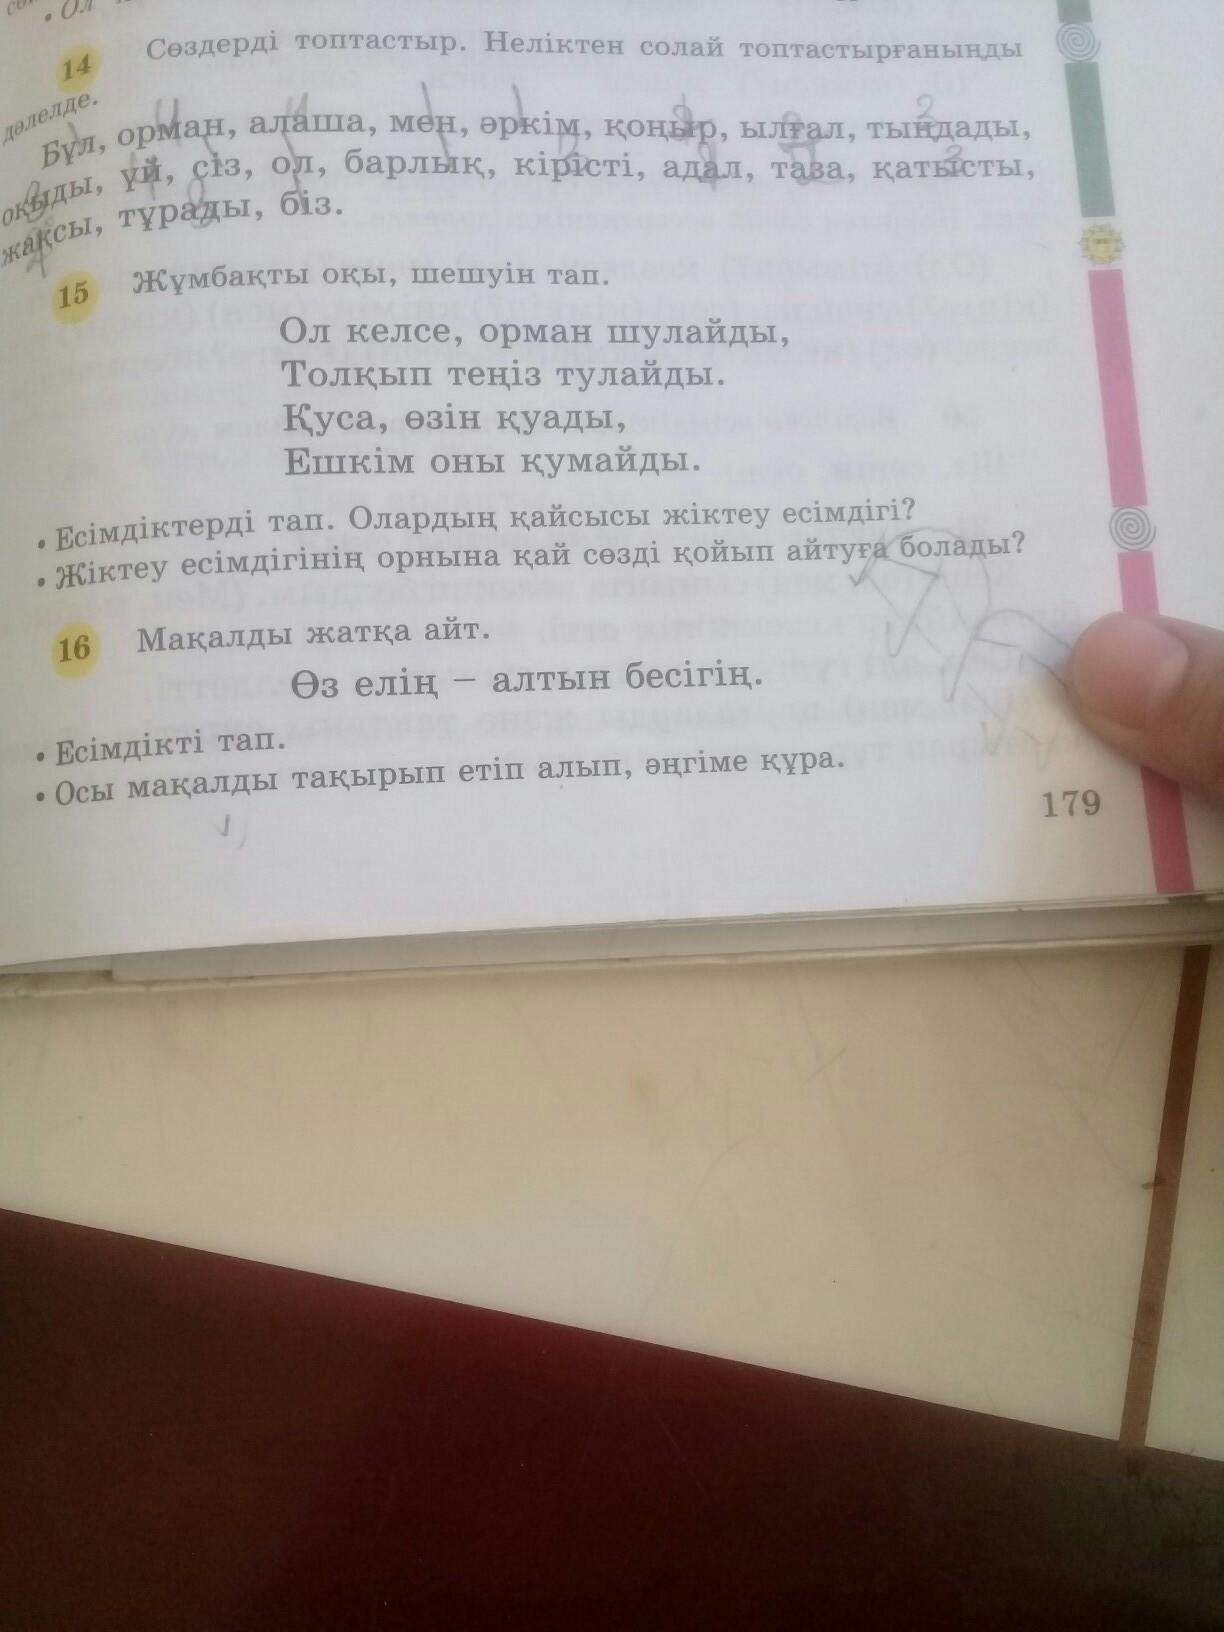 • Ол
14 Сөздерді топтастыр. Неліктен солай топтастырғаныңды
дәлелде.
Бұл, орман, алаша, мен, әркім, қоңыр, ылғал, тыңдады,
оқыды, үй, сіз, ол, барлық, кірісті, адал, таза, қатысты,
жақсы, тұрады, біз.
15 Жұмбақты оқы, шешуін тап.
Ол келсе, орман шулайды,
Толқып теңіз тулайды.
Қуса, өзін қуады,
Ешкім оны қумайды.
• Есімдіктерді тап. Олардың қайсысы жіктеу есімдігі?
• Жіктеу есімдігінің орнына қай сөзді қойып айтуға болады?
16 Мақалды жатқа айт.
Өз елің – алтын бесігің.
• Есімдікті тап.
• Осы мақалды тақырып етіп алып, әңгіме құра.
179